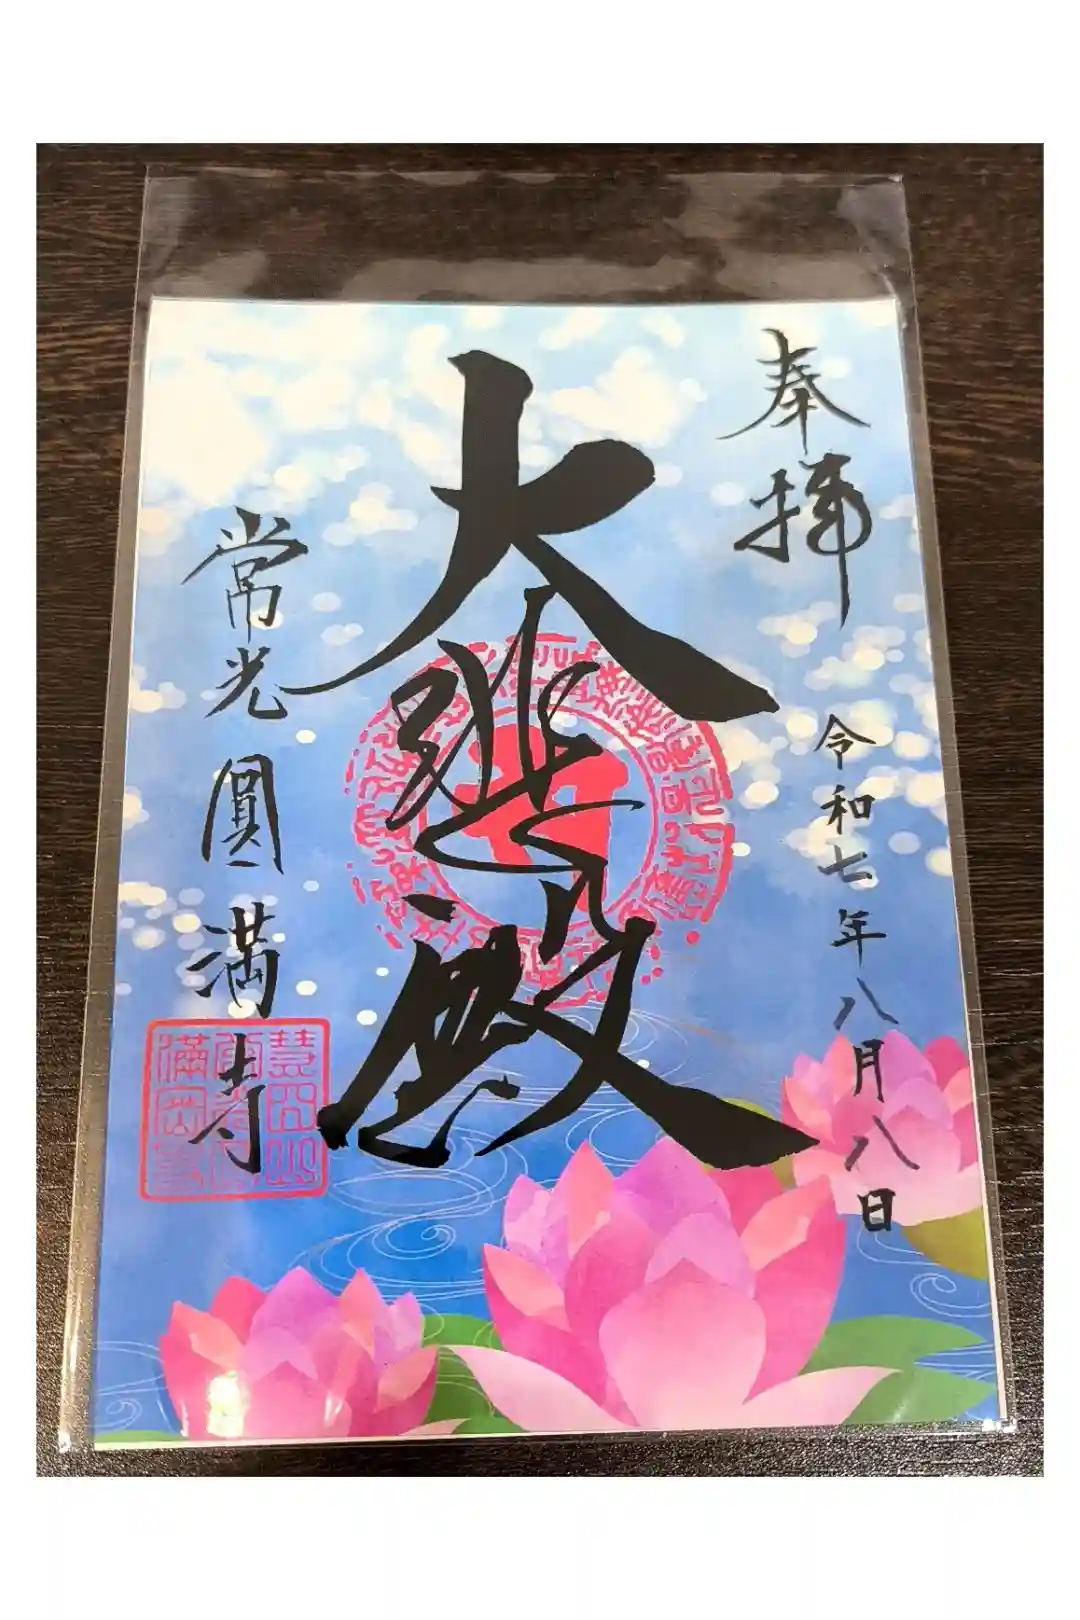 奉拝
令和七年八月八日
大悲殿
常光圓満寺